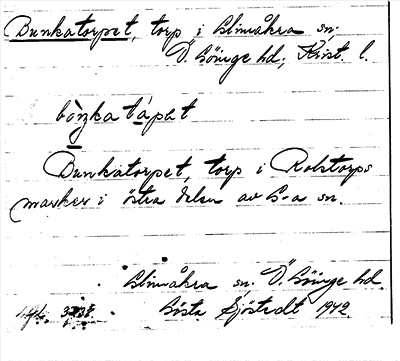 Bunkatorpet, torp i Glimåkra sn.
Ö. Göinge hd., Krist. l.
bòŋkatápat
Bunkatorpet, torp i Rolstorps
marker i östra delen av G-a sn.
Glimåkra sn. Ö. Göinge hd.
Gösta Sjöstedt 1942